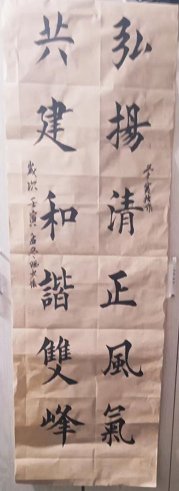 弘揚清正風氣
共建和諧雙峰
歲次壬寅